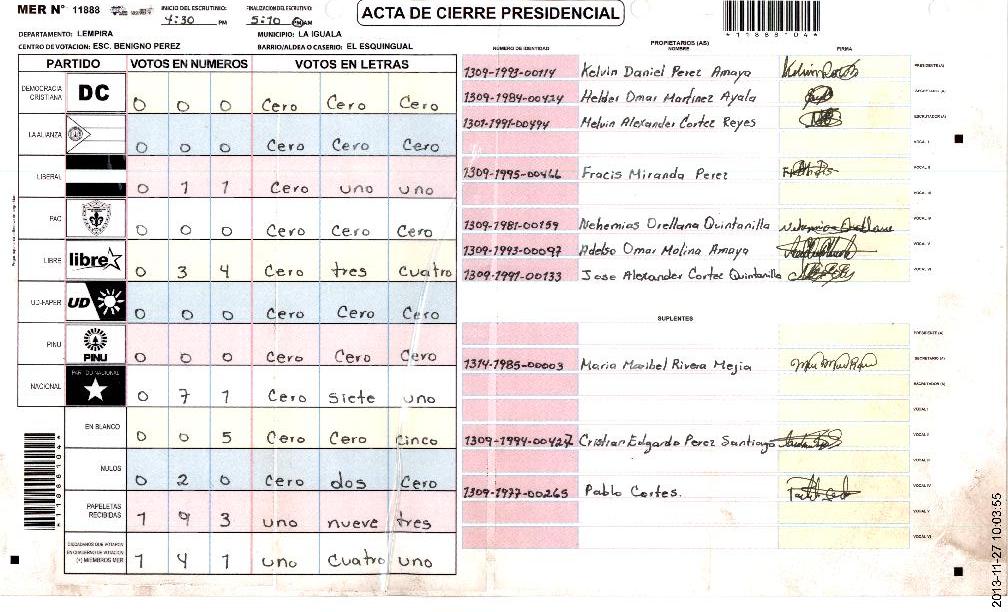 MER Nº 11888
INICIO DEL ESCRUTINIO: 4:30 PM
FINALIZACION DEL ESCRUTINIO: 5:10 PM AM
ACTA DE CIERRE PRESIDENCIAL
*11888104*
DEPARTAMENTO: LEMPIRA
MUNICIPIO: LA IGUALA
CENTRO DE VOTACION: ESC. BENIGNO PEREZ
BARRIO/ALDEA O CASERIO: EL ESQUINGUAL
PARTIDO VOTOS EN NUMEROS VOTOS EN LETRAS
DEMOCRACIA CRISTIANA DC 0 0 0 Cero Cero Cero
LA ALIANZA 0 0 0 Cero Cero Cero
LIBERAL 0 1 1 Cero uno uno
PAC 0 0 0 Cero Cero Cero
LIBRE libre 0 3 4 Cero tres cuatro
UD-FAPER UD 0 0 0 Cero Cero Cero
PINU PINU 0 0 0 Cero Cero Cero
NACIONAL PARTIDO NACIONAL 0 7 1 Cero siete uno
EN BLANCO 0 0 5 Cero Cero Cinco
NULOS 0 2 0 Cero dos Cero
PAPELETAS RECIBIDAS 1 9 3 uno nueve tres
CIUDADANOS QUE VOTARON EN CUADERNO DE VOTACION (+) MIEMBROS MER 1 4 1 uno cuatro uno
*11888104*
PROPIETARIOS (AS)
NÚMERO DE IDENTIDAD NOMBRE FIRMA
1309-1993-00114 Kelvin Daniel Perez Amaya PRESIDENTE (A)
1309-1984-00424 Helder Omar Martinez Ayala SECRETARIO (A)
1301-1991-00494 Melvin Alexander Cortez Reyes ESCRUTADOR (A)
VOCAL I
1309-1995-00466 Fracis Miranda Perez VOCAL II
VOCAL III
1309-1981-00159 Nehemias Orellana Quintanilla Nehemias Orellana VOCAL IV
1309-1993-00097 Adelso Omar Molina Amaya VOCAL V
1309-1991-00133 Jose Alexander Cortez Quintanilla VOCAL VI
SUPLENTES
PRESIDENTE (A)
1314-1985-00003 Maria Maribel Rivera Mejia SECRETARIO (A)
ESCRUTADOR (A)
VOCAL I
1309-1994-00427 Cristian Edgardo Perez Santiago VOCAL II
VOCAL III
1309-1977-00265 Pablo Cortes. VOCAL IV
VOCAL V
VOCAL VI
2013-11-27 10:03:55